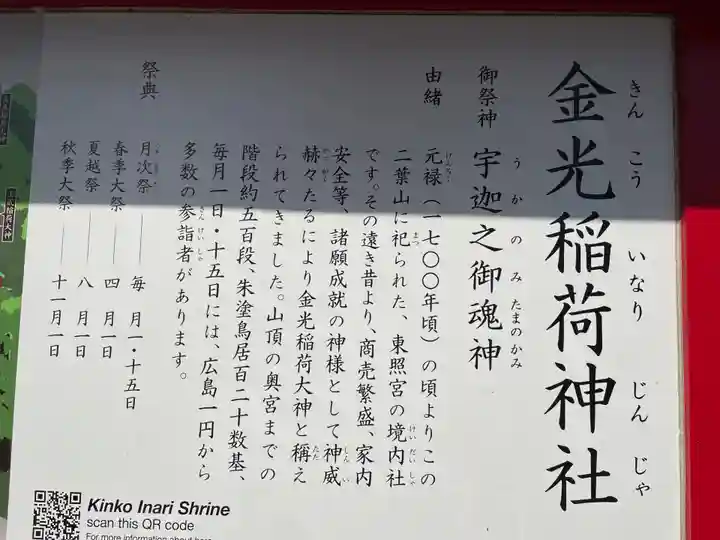 金光稲荷神社
きんこういなりじんじゃ
御祭神 宇迦之御魂神
うかのみたまのかみ
由緒 元禄（一七〇〇年頃）の頃よりこの
二葉山に祀られた、東照宮の境内社
です。その遠き昔より、商売繁盛、家内
安全等、諸願成就の神様として神威
赫々たるにより金光稲荷大神と稱え
られてきました。山頂の奥宮までの
階段約五百段、朱塗鳥居百二十数基、
毎月一日・十五日には、広島一円から
多数の参詣者があります。
祭典 月次祭 ― 毎 月一・十五日
春季大祭 ― 四 月一日
夏越祭 ― 八 月一日
秋季大祭 ― 十一月一日
Kinko Inari Shrine
scan this QR code
For more information about here